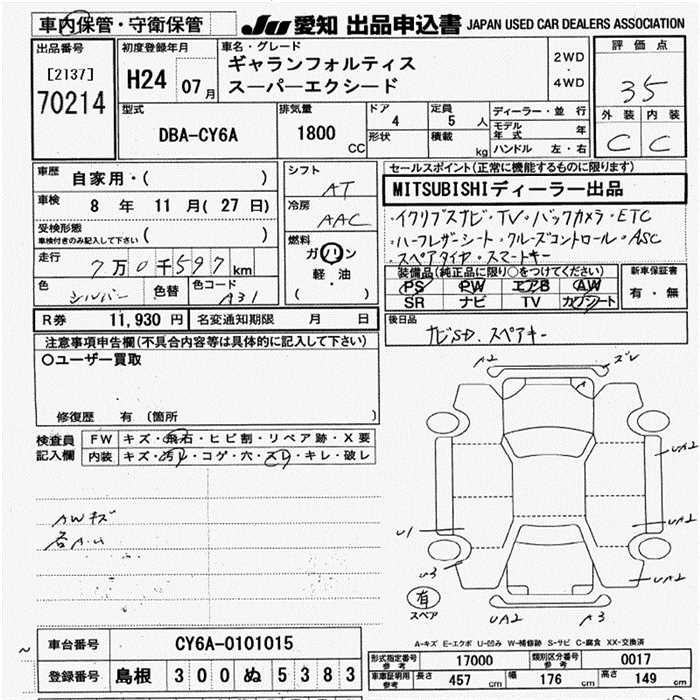 車内保管・守衛保管
JU 愛知 出品申込書 JAPAN USED CAR DEALERS ASSOCIATION
出品番号
[2137]
70214
初度登録年月
H24 07月
車名・グレード
ギャランフォルティス
スーパーエクシード
2WD
・
4WD
評価点
35
外装 内装
C C
型式
DBA-CY6A
排気量
1800 CC
ドア
4
形状
定員
5 人
積載
kg
ディーラー・並行
モデル年式 年
ハンドル 左・右
車歴
自家用・( )
車検 8 年 11 月( 27 日)
受検形態
車検付きのみ記入して下さい ( )
走行 7万0千597km
色 シルバー 色替 色コード A31
シフト
AT
冷房
AAC
燃料
ガソリン
軽・油
( )
セールスポイント(正常に機能するものに限ります)
MITSUBISHIディーラー出品
・イクリプスナビ・TV・バックカメラ・ETC
・ハーフレザーシート・クルーズコントロール・ASC
・スペアタイヤ・スマートキー
装備品(純正品に限り○をつけてください)
PS PW エアB AW
SR ナビ TV カワシート
新車保証書
有・無
R券 11,930 円 名変通知期限 月 日
後日品
ナビSD、スペアキー
注意事項申告欄(不具合内容等は具体的に記入して下さい)
○ユーザー買取
修復歴 有 〔箇所 〕
検査員記入欄
FW キズ・飛石・ヒビ割・リペア跡・X要
内装 キズ・汚れ・コゲ・穴・スレ・キレ・破レ
AWキズ
各A.U
A2 ズレ
A
UA2
U1 UA2
U3 UA2
有
スペア
UA2 A3
A-キズ E-エクボ U-凹み W-補修跡 S-サビ C-腐食 XX-交換済
車台番号 CY6A-0101015
登録番号 島根 300 ぬ 5383
形式指定番号参考 17000 類別区分番号参考 0017
車庫証明用参考 長さ 457 cm 幅 176 cm 高さ 149 cm